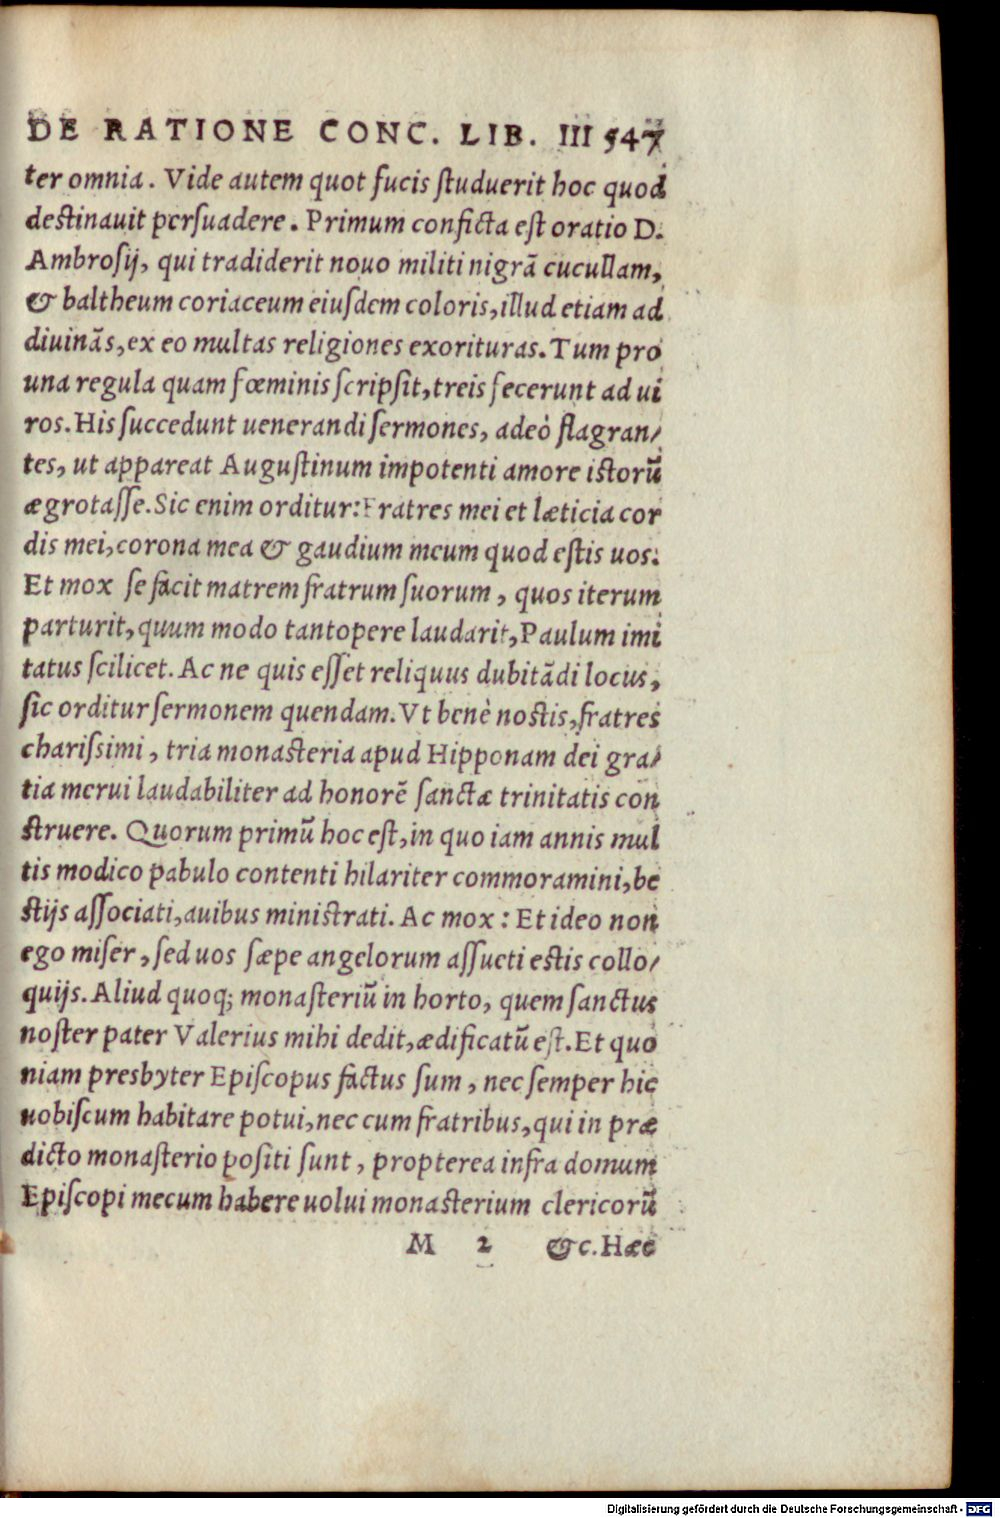 DE RATIONE CONC. LIB. III 547
ter omnia. Vide autem quot fucis ſtuduerit hoc quod
deſtinauit perſuadere. Primum conficta eſt oratio D.
Ambroſij, qui tradiderit nouo militi nigrã cucullam,
& baltheum coriaceum eiuſdem coloris, illud etiam ad
diuinãs, ex eo multas religiones exorituras. Tum pro
una regula quam fœminis ſcripſit, treis fecerunt ad ui
ros. His ſuccedunt uenerandi ſermones, adeò flagran/
tes, ut appareat Auguſtinum impotenti amore iſtorũ
ægrotaſſe. Sic enim orditur: Fratres mei et læticia cor
dis mei, corona mea & gaudium meum quod eſtis uos.
Et mox ſe facit matrem fratrum ſuorum, quos iterum
parturit, quum modo tantopere laudarit, Paulum imi
tatus ſcilicet. Ac ne quis eſſet reliquus dubitãdi locus,
ſic orditur ſermonem quendam. Vt benè noſtis, fratres
chariſsimi, tria monaſteria apud Hipponam dei gra/
tia merui laudabiliter ad honorẽ ſanctæ trinitatis con
ſtruere. Quorum primũ hoc eſt, in quo iam annis mul
tis modico pabulo contenti hilariter commoramini, be
ſtijs aſſociati, auibus miniſtrati. Ac mox: Et ideo non
ego miſer, ſed uos ſæpe angelorum aſſueti eſtis collo/
quijs. Aliud quoq; monaſteriũ in horto, quem ſanctus
noſter pater Valerius mihi dedit, ædificatũ eſt. Et quo
niam presbyter Epiſcopus factus ſum, nec ſemper hic
uobiſcum habitare potui, nec cum fratribus, qui in præ
dicto monaſterio poſiti ſunt, propterea infra domum
Epiſcopi mecum habere uolui monaſterium clericorũ
M 2 &c. Hæc
Digitalisierung gefördert durch die Deutsche Forschungsgemeinschaft - DFG